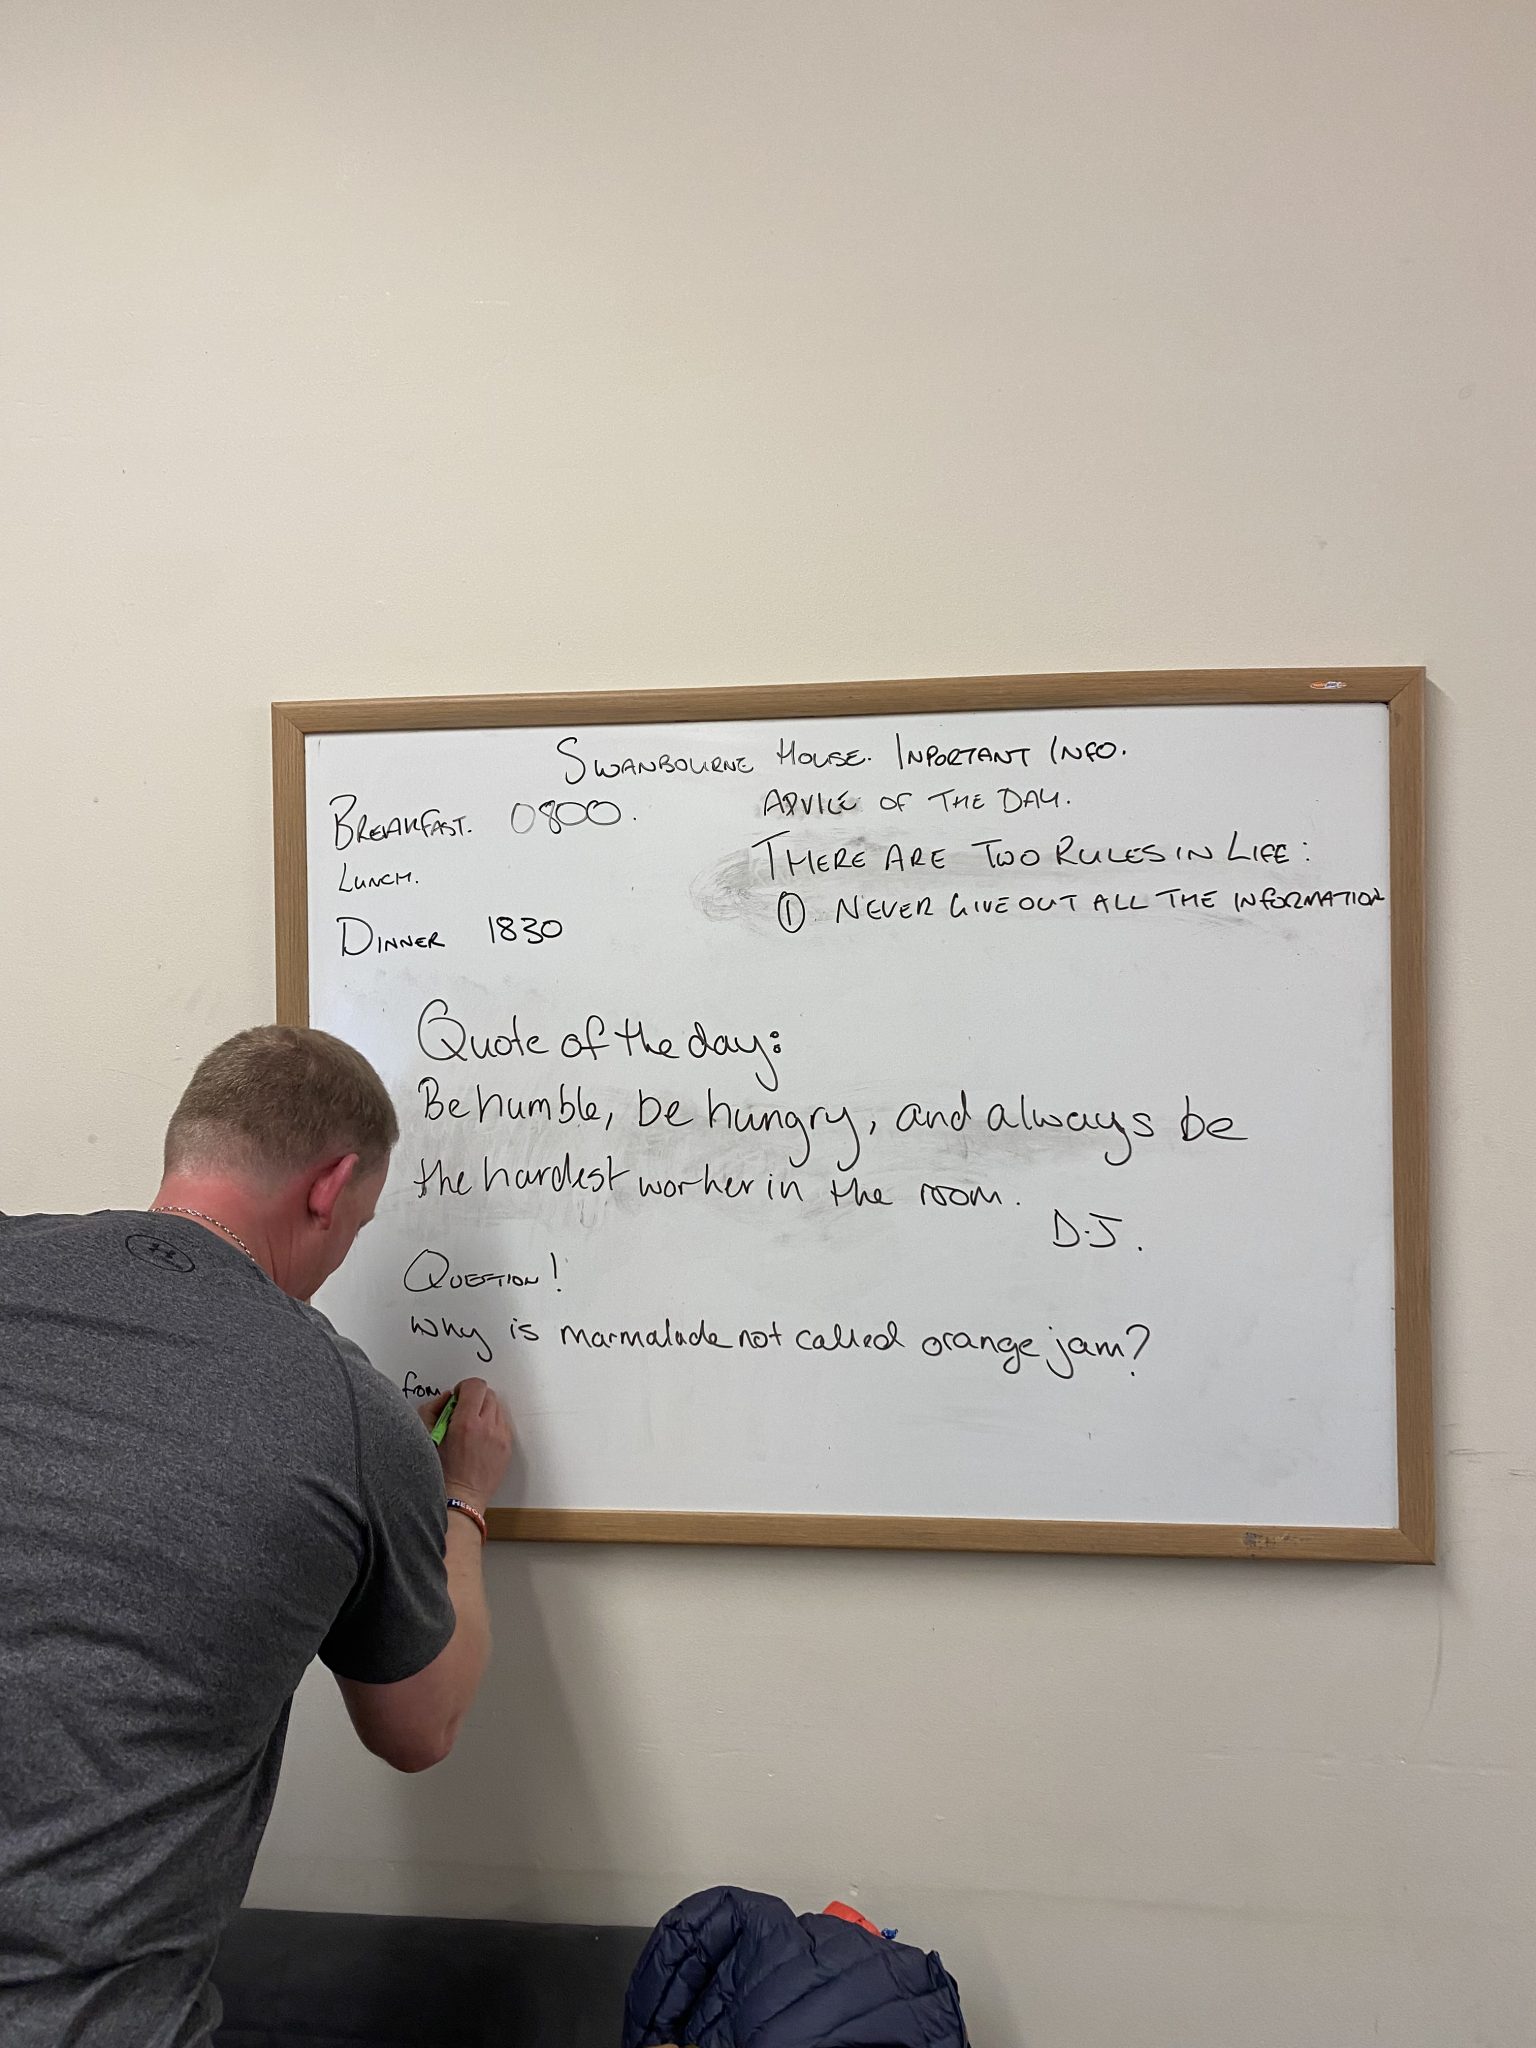 SWANBOURNE HOUSE. INPORTANT INFO.
BREAKFAST. 0800.
LUNCH.
DINNER 1830
ADVICE OF THE DAY.
THERE ARE TWO RULES IN LIFE:
① NEVER GIVE OUT ALL THE INFORMATION
Quote of the day:
Be humble, be hungry, and always be
the hardest worker in the room.
D.J.
QUESTION!
Why is marmalade not called orange jam?
from